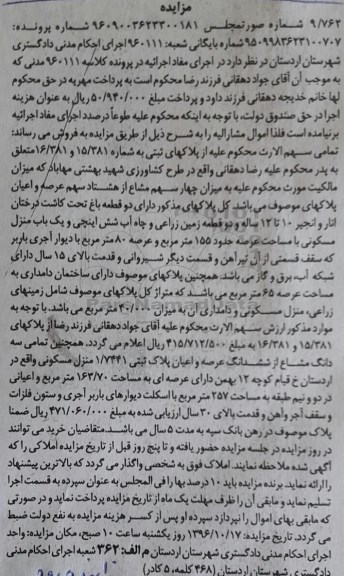 مزایده
۹/۷۶۲ شماره صورتمجلس ۹۶۰۹۰۰۳۶۲۳۳۰۰۱۸۱ شماره پرونده:
۹۵۰۹۹۸۳۶۲۳۱۰۰۷۰۷ شماره بایگانی شعبه: ۹۶۰۱۱۱ اجرای احکام مدنی دادگستری
شهرستان اردستان در نظر دارد در اجرای مفاد اجرائیه در پرونده کلاسه ۹۶۰۱۱۱ مدنی که
به موجب آن آقای جواد دهقانی فرزند رضا محکوم است به پرداخت مهریه در حق محکوم
لها خانم خدیجه دهقانی فرزند داود و پرداخت مبلغ ۵۰/۹۴۰/۰۰۰ ریال به عنوان هزینه
اجرا در حق صندوق دولت، با توجه به اینکه محکوم علیه طوعاً درصدد اجرای مفاد اجرائیه
برنیامده است فلذا اموال مشارالیه را به شرح ذیل از طریق مزایده به فروش می رساند:
تمامی سهم الارث محکوم علیه از پلاکهای ثبتی به شماره ۱۵/۳۸۱ و ۱۶/۳۸۱ متعلق
به پدر محکوم علیه رضا دهقانی واقع در طرح کشاورزی شهید بهشتی مهاباد که میزان
مالکیت مورث محکوم علیه به میزان چهار سهم مشاع از هشتاد سهم عرصه و اعیان
پلاکهای موصوف می باشد. کل پلاکهای مذکور دارای دو قطعه باغ تحت کاشت درختان
انار و انجیر ۱۰ تا ۱۲ ساله و دو قطعه زمین زراعی و چاه آب شش اینچی و یک باب منزل
مسکونی با مساحت عرصه حدود ۱۵۵ متر مربع و عرصه ۸۰ متر مربع با دیوار آجری باربر
که سقف قسمتی از آن تیرآهن و قسمت دیگر شیروانی و قدمت بالای ۱۵ سال دارای
شبکه آب، برق و گاز می باشد. همچنین پلاکهای موصوف دارای ساختمان دامداری به
مساحت عرصه ۶۵ متر مربع می باشد که متراژ کل پلاکهای موصوف شامل زمینهای
زراعی، منزل مسکونی و دامداری آن به میزان ۴۰/۰۰۰ متر مربع می باشد. با توجه به
موارد مذکور ارزش سهم الارث محکوم علیه آقای جواد دهقانی فرزند رضا از پلاکهای
۱۵/۳۸۱ و ۱۶/۳۸۱ به مبلغ ۴۱۵/۷۱۲/۵۰۰ ریال اعلام می گردد. همچنین تمامی سه
دانگ مشاع از ششدانگ عرصه و اعیان پلاک ثبتی ۱/۷۴۴۱ منزل مسکونی واقع در
اردستان خ قیام کوچه ۱۲ بهمن دارای عرصه ای به مساحت ۱۶۳/۷۰ متر مربع و اعیانی
در دو و نیم طبقه به مساحت ۲۵۷ متر مربع با اسکلت دیوارهای باربر آجری و ستون فلزات
و سقف آجر وآهن و قدمت بالای ۳۰ سال ارزیابی شده به مبلغ ۴۷۱/۰۶۰/۰۰۰ ریال ضمنا
پلاک موصوف در رهن بانک سپه به مدت ۵ سال می باشد. متقاضیان خرید می توانند
در روز مزایده در جلسه مزایده حضور یافته و تا پنج روز قبل از تاریخ مزایده املاکی را که
آگهی شده ملاحظه نمایند. املاک فوق به شخصی واگذار می گردد که بالاترین پیشنهاد
را ارائه نماید. برنده مزایده باید ۱۰ درصد بها را فی المجلس به عنوان سپرده به قسمت اجرا
تسلیم نماید و مابقی آن را ظرف مهلت یک ماه از تاریخ مزایده پرداخت نماید و در صورتی
که مابقی بهای اموال را نپردازد سپرده او پس از کسر هزینه مزایده به نفع دولت ضبط
می گردد. تاریخ مزایده: ۱۳۹۶/۱۰/۱۷ روز یکشنبه ساعت ۱۰ صبح، مکان مزایده: واحد
اجرای احکام مدنی دادگستری شهرستان اردستان م الف: ۳۶۲ شعبه اجرای احکام مدنی
دادگستری شهرستان اردستان (۴۶۸ کلمه، ۵ کادر)